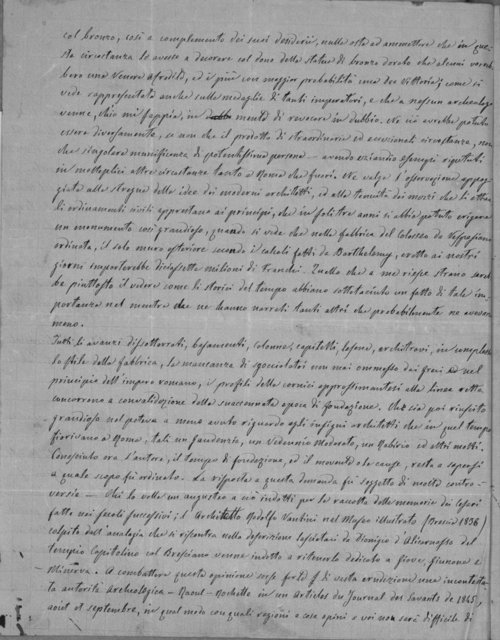 col bronzo, così a complemento dei suoi desiderii, nulla osta ad ammettere che in que-
sta circostanza lo avesse a decorare col dono della statua di bronzo dorato che alcuni vorreb-
bero una Venere Afrodite, ed i più con maggior probabilità una dea Vittoria; come si
vede rappresentata anche sulle medaglie di tanti imperatori, e che a nessun archeologo
venne, ch'io mi sappia, in mente di revocare in dubbio. Nè ciò avrebbe potuto
essere diversamente, se non che il prodotto di straordinarie ed eccezionali circostanze, non
che singolare munificenza di potentissima persona — avendo esempi ripetuti
in molteplici altre circostanze tanto a Roma che fuori. Nè valga l'osservazione appog-
giata alla stregua delle idee dei moderni architetti, ed alla tenuità dei mezzi che
gli ordinamenti civili apprestano ai principi, che in soli tre anni si abbia potuto erigere
un monumento così grandioso, quando si vede che nella fabbrica del Colosseo da Vespasiano
ordinata, il solo muro esteriore secondo i calcoli fatti da Barthelemy, eretto ai nostri
giorni importerebbe diciassette milioni di Franchi. Quello che a me riesce strano sareb-
be piuttosto il vedere come li storici del tempo abbiano sottaciuto un fatto di tale im-
portanza nel mentre che ne hanno narrati tanti altri che probabilmente ne avevano
meno.
Tutti li avanzi dissotterrati, basamenti, colonne, capitelli, lesene, architravi, in complesso
lo stile della fabbrica, la mancanza di gocciolatoi non mai ommesso dai greci nel
principio dell'impero romano, i profili delle cornici approssimantesi alla linea retta
concorrono a convalidazione della succennata epoca di fondazione. Che sia poi riuscito
grandioso nol poteva a meno avuto riguardo agli insigni architetti che in quel tempo
fiorivano a Roma, tali un Gaudenzio, un Vedennio Moderato, un Rabirio ed altri molti.
Conosciuto ora l'autore, il tempo di fondazione, ed il movente le cause, resta a sapersi
a quale scopo fu ordinato. La risposta a questa domanda fu soggetto di molta contro-
versia — Chi la volle un augusteo a ciò indotti per la raccolta delle memorie dei Cesari
fatte nei secoli successivi; l'Architetto Rodolfo Vantini nel Museo illustrato (Brescia 1838)
colpito dall'analogia che si riscontra nella descrizione lasciataci da Dionigio d'Alicarnasso del
tempio Capitolino col Bresciano venne indotto a ritenerlo dedicato a Giove, Giunone e
Minerva. A combattere questa opinione sorse di vasta erudizione una incontesta-
ta autorità Archeologica — Raoul-Rochette in un Articles du Journal des Savants de 1845,
aout et septembre, in qual modo con quali ragioni e cose opini a voi non sarà difficile di